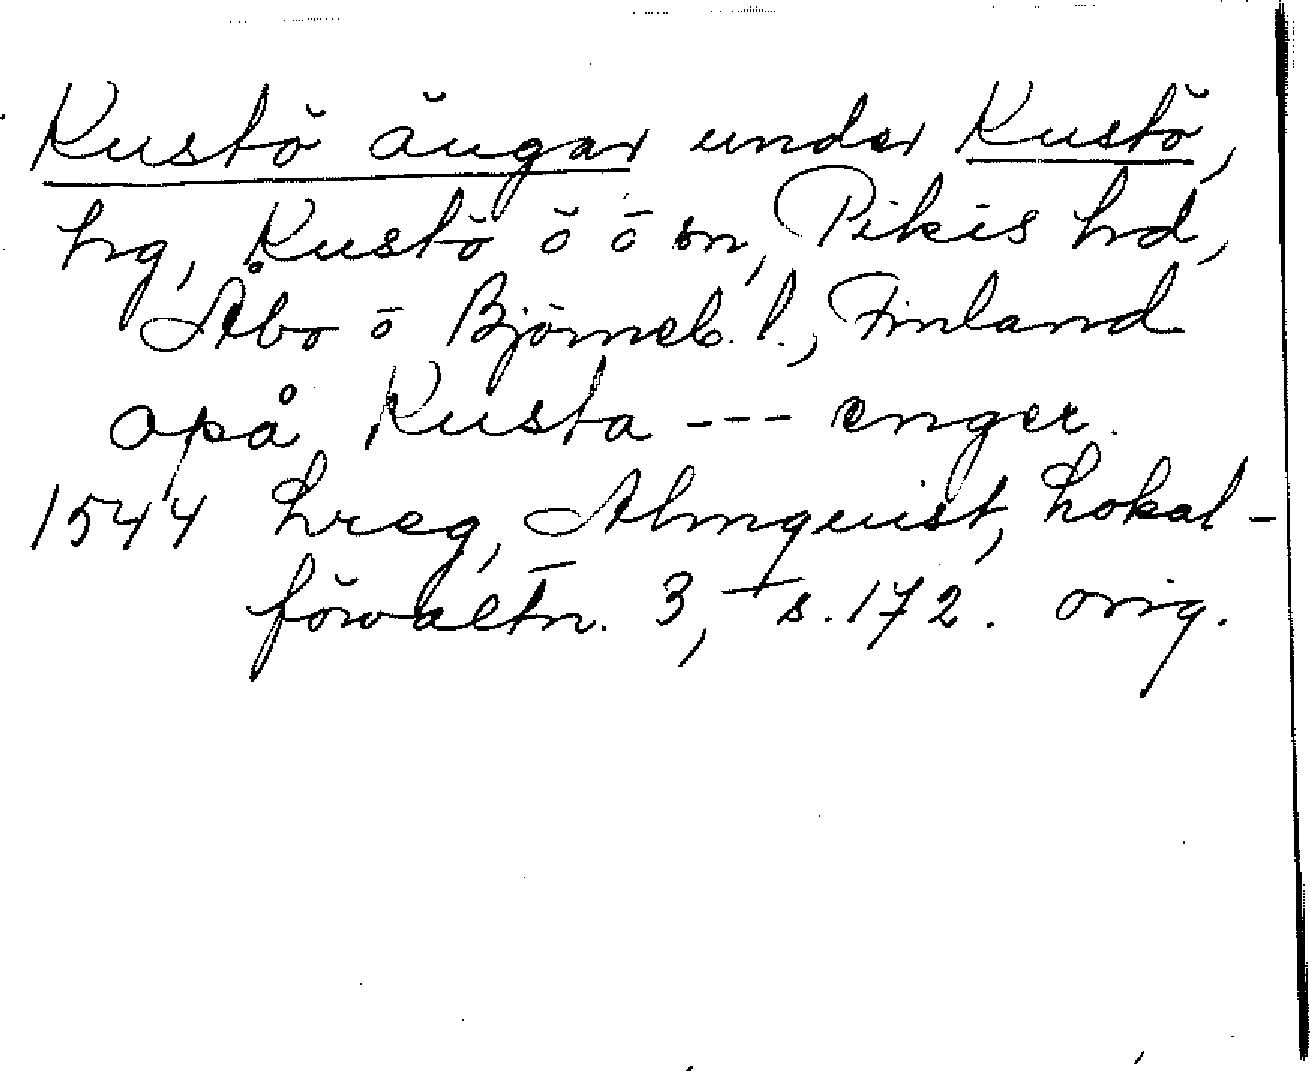 Kustö ängar under Kustö,
hg, Kustö ö ō sn, Pikis hd,
Åbo ō Björneb. l., Finland
opå Kusta --- enger.
1544 hreg, Almquist, Lokal-
förvaltn. 3, s. 172. orig.